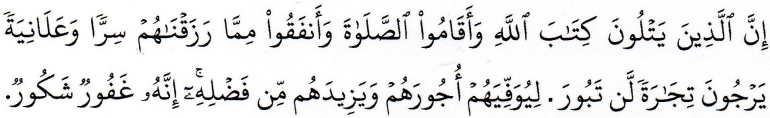 إِنَّ ٱلَّذِينَ يَتْلُونَ كِتَٰبَ ٱللَّهِ وَأَقَامُوا۟ ٱلصَّلَوٰةَ وَأَنفَقُوا۟ مِمَّا رَزَقْنَٰهُمْ سِرًّا وَعَلَانِيَةً
يَرْجُونَ تِجَٰرَةً لَّن تَبُورَ . لِيُوَفِّيَهُمْ أُجُورَهُمْ وَيَزِيدَهُم مِّن فَضْلِهِۦٓ ۚ إِنَّهُۥ غَفُورٌ شَكُورٌ.